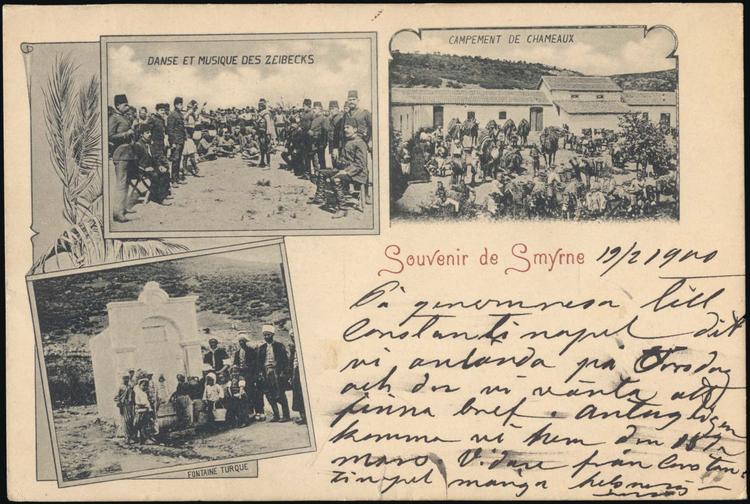 DANSE ET MUSIQUE DES ZEIBECKS
CAMPEMENT DE CHAMEAUX
Souvenir de Smyrne 19/2 1900
På genomresa till
Constantinopel dit
vi anlända på Torsdag
och der vi vänta att
finna bref. Antagligen
komma vi hem den
mars. Vidare från Constan-
tinopel många helsn
FONTAINE TURQUE